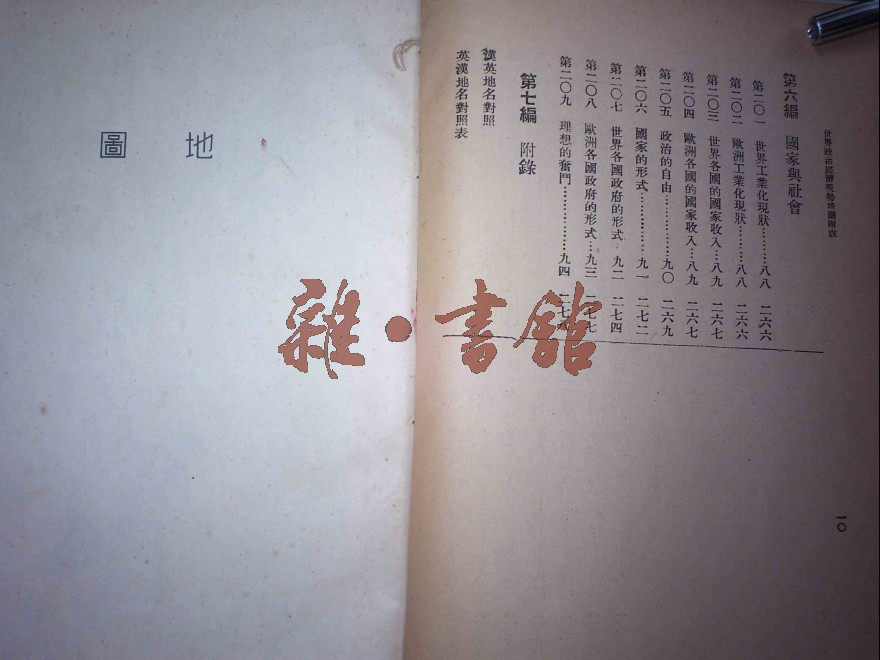 世界政治經濟現勢地圖解說
第六編 國家與社會
第二〇一 世界工業化現狀………八八 二六六
第二〇二 歐洲工業化現狀………八八 二六六
第二〇三 世界各國的國家收入…八九 二六七
第二〇四 歐洲各國的國家收入…八九 二六七
第二〇五 政治的自由……………九〇 二六九
第二〇六 國家的形式……………九一 二七二
第二〇七 世界各國政府的形式·九二 二七四
第二〇八 歐洲各國政府的形式…九三 二七七
第二〇九 理想的奮鬥………………九四
第七編 附錄
漢英地名對照
英漢地名對照表
一〇
地圖
雜·書館